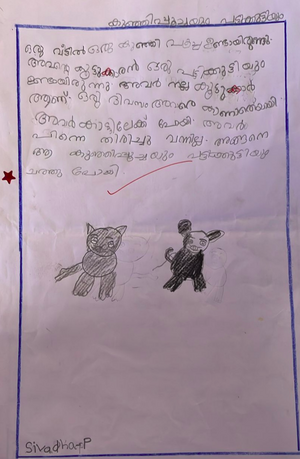 കുഞ്ഞിപൂച്ചയും പട്ടിക്കുട്ടിയും
ഒരു വീട്ടിൽ ഒരു കുഞ്ഞി പൂച്ച ഉണ്ടായിരുന്നു.
അവന്റെ കൂട്ടുകാരൻ ഒരു പട്ടിക്കുട്ടിയും
ഉണ്ടായിരുന്നു അവർ നല്ല കൂട്ടുകാർ
ആണ്. ഒരു ദിവസം അവരെ കാണാതെയായി
അവർ കാട്ടിലേക്ക് പോയി. അവർ
പിന്നെ തിരിച്ചു വന്നില്ല. അങ്ങനെ
ആ കുഞ്ഞിപൂച്ചയും പട്ടിക്കുട്ടിയും
ചത്തു പോയി
Sivadhar P